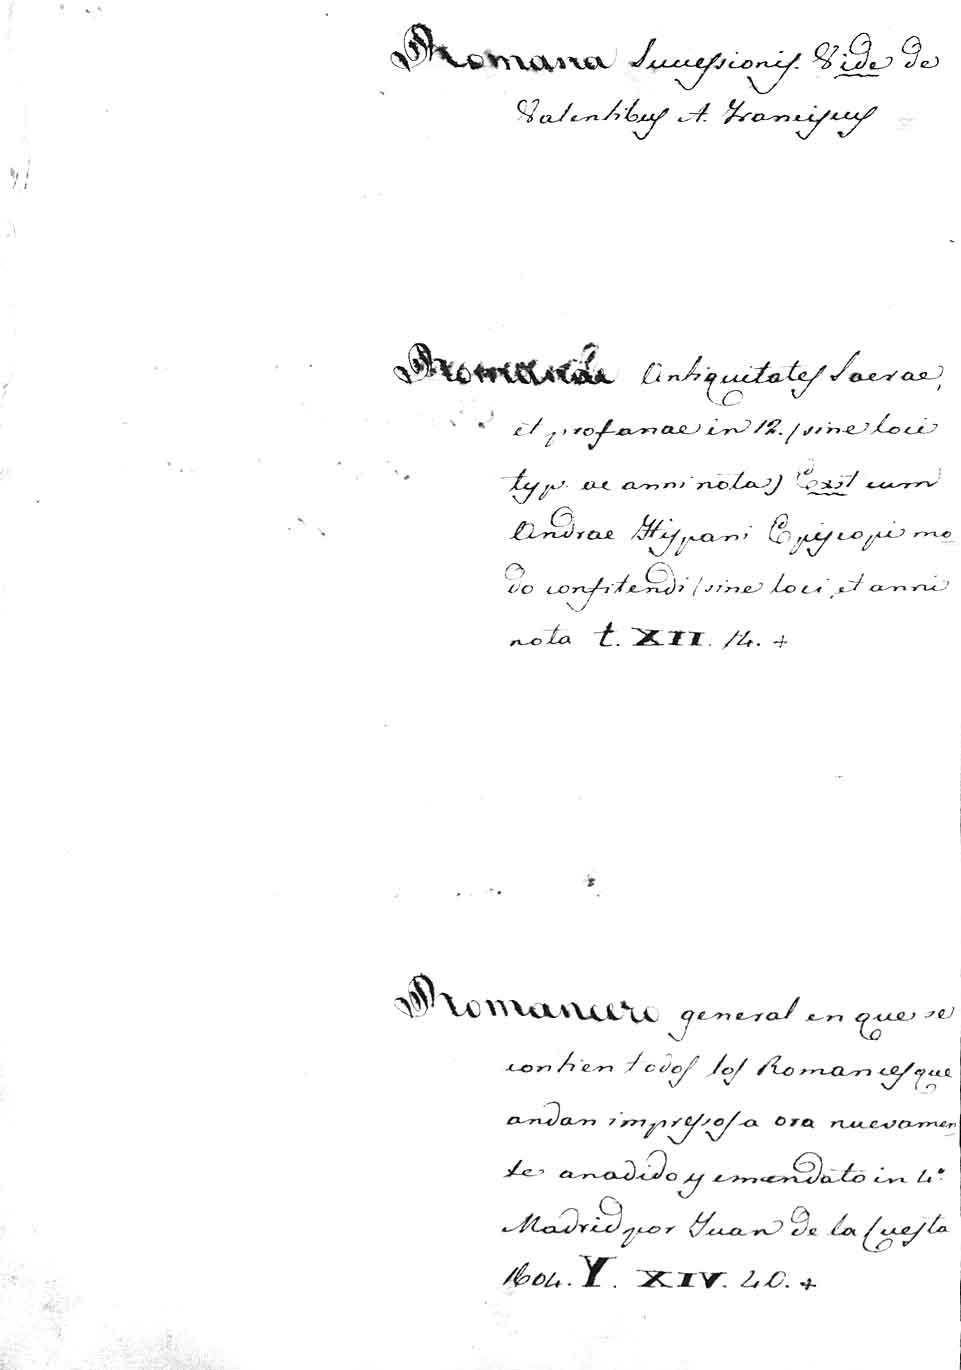 Romana Successionis. Vide de
Valentibus A. Franciscus
Romanae Antiquitates Sacrae,
et profanae in 12. (sine loci
typ. ac anni nota) Exit cum
Andrae Hispani Episcopi mo
do confitendi (sine loci, et anni
nota t. XII. 14. +
Romancero general en que se
contien todos los Romances que
andan impressos a ora nuevamen
te anadido y emendato in 4.º
Madrid por Juan de la Cuesta
1604. Y. XIV. 40. +